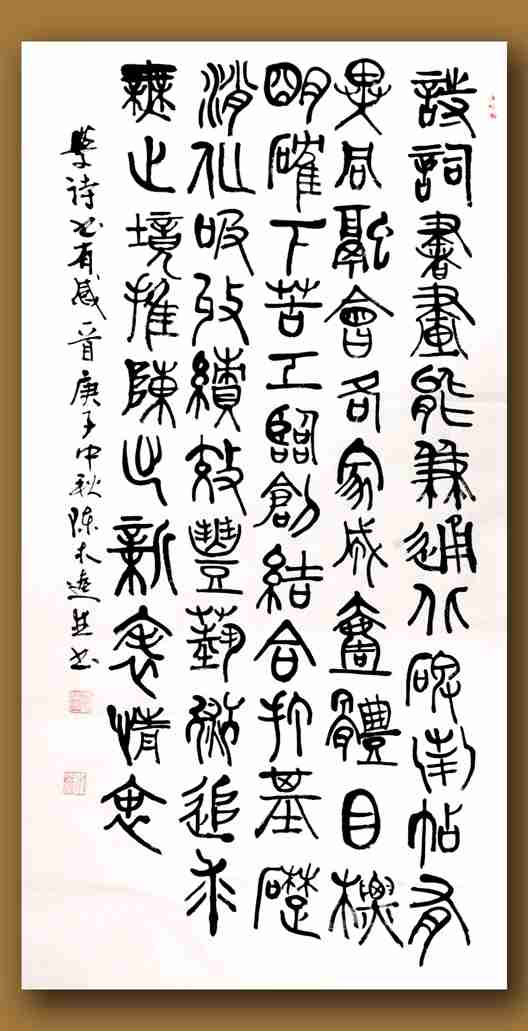 詩詞書畫能兼通北碑南帖有
異同融會各家成壹體目標
明確下苦工臨創結合打基礎
消化吸收績效豐藝術追求
無止境推陳出新表情
學詩書有感一首庚子中秋陳木並書